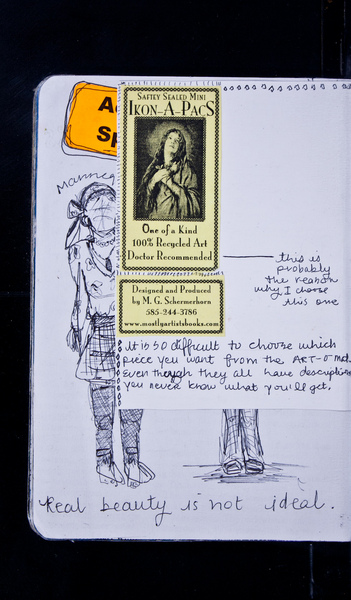 SAFTEY SEALED MINI
IKON-A-PACS
One of a Kind
100% Recycled Art
Doctor Recommended
this is
probably
the reason
why I chose
this one
Designed and Produced
by M. G. Schermerhorn
585-244-3786
www.mostlyartistbooks.com
It is so difficult to choose which
piece you want from the ART-O mat.
Even though they all have description
you never know what you'll get.
Real beauty is not ideal.